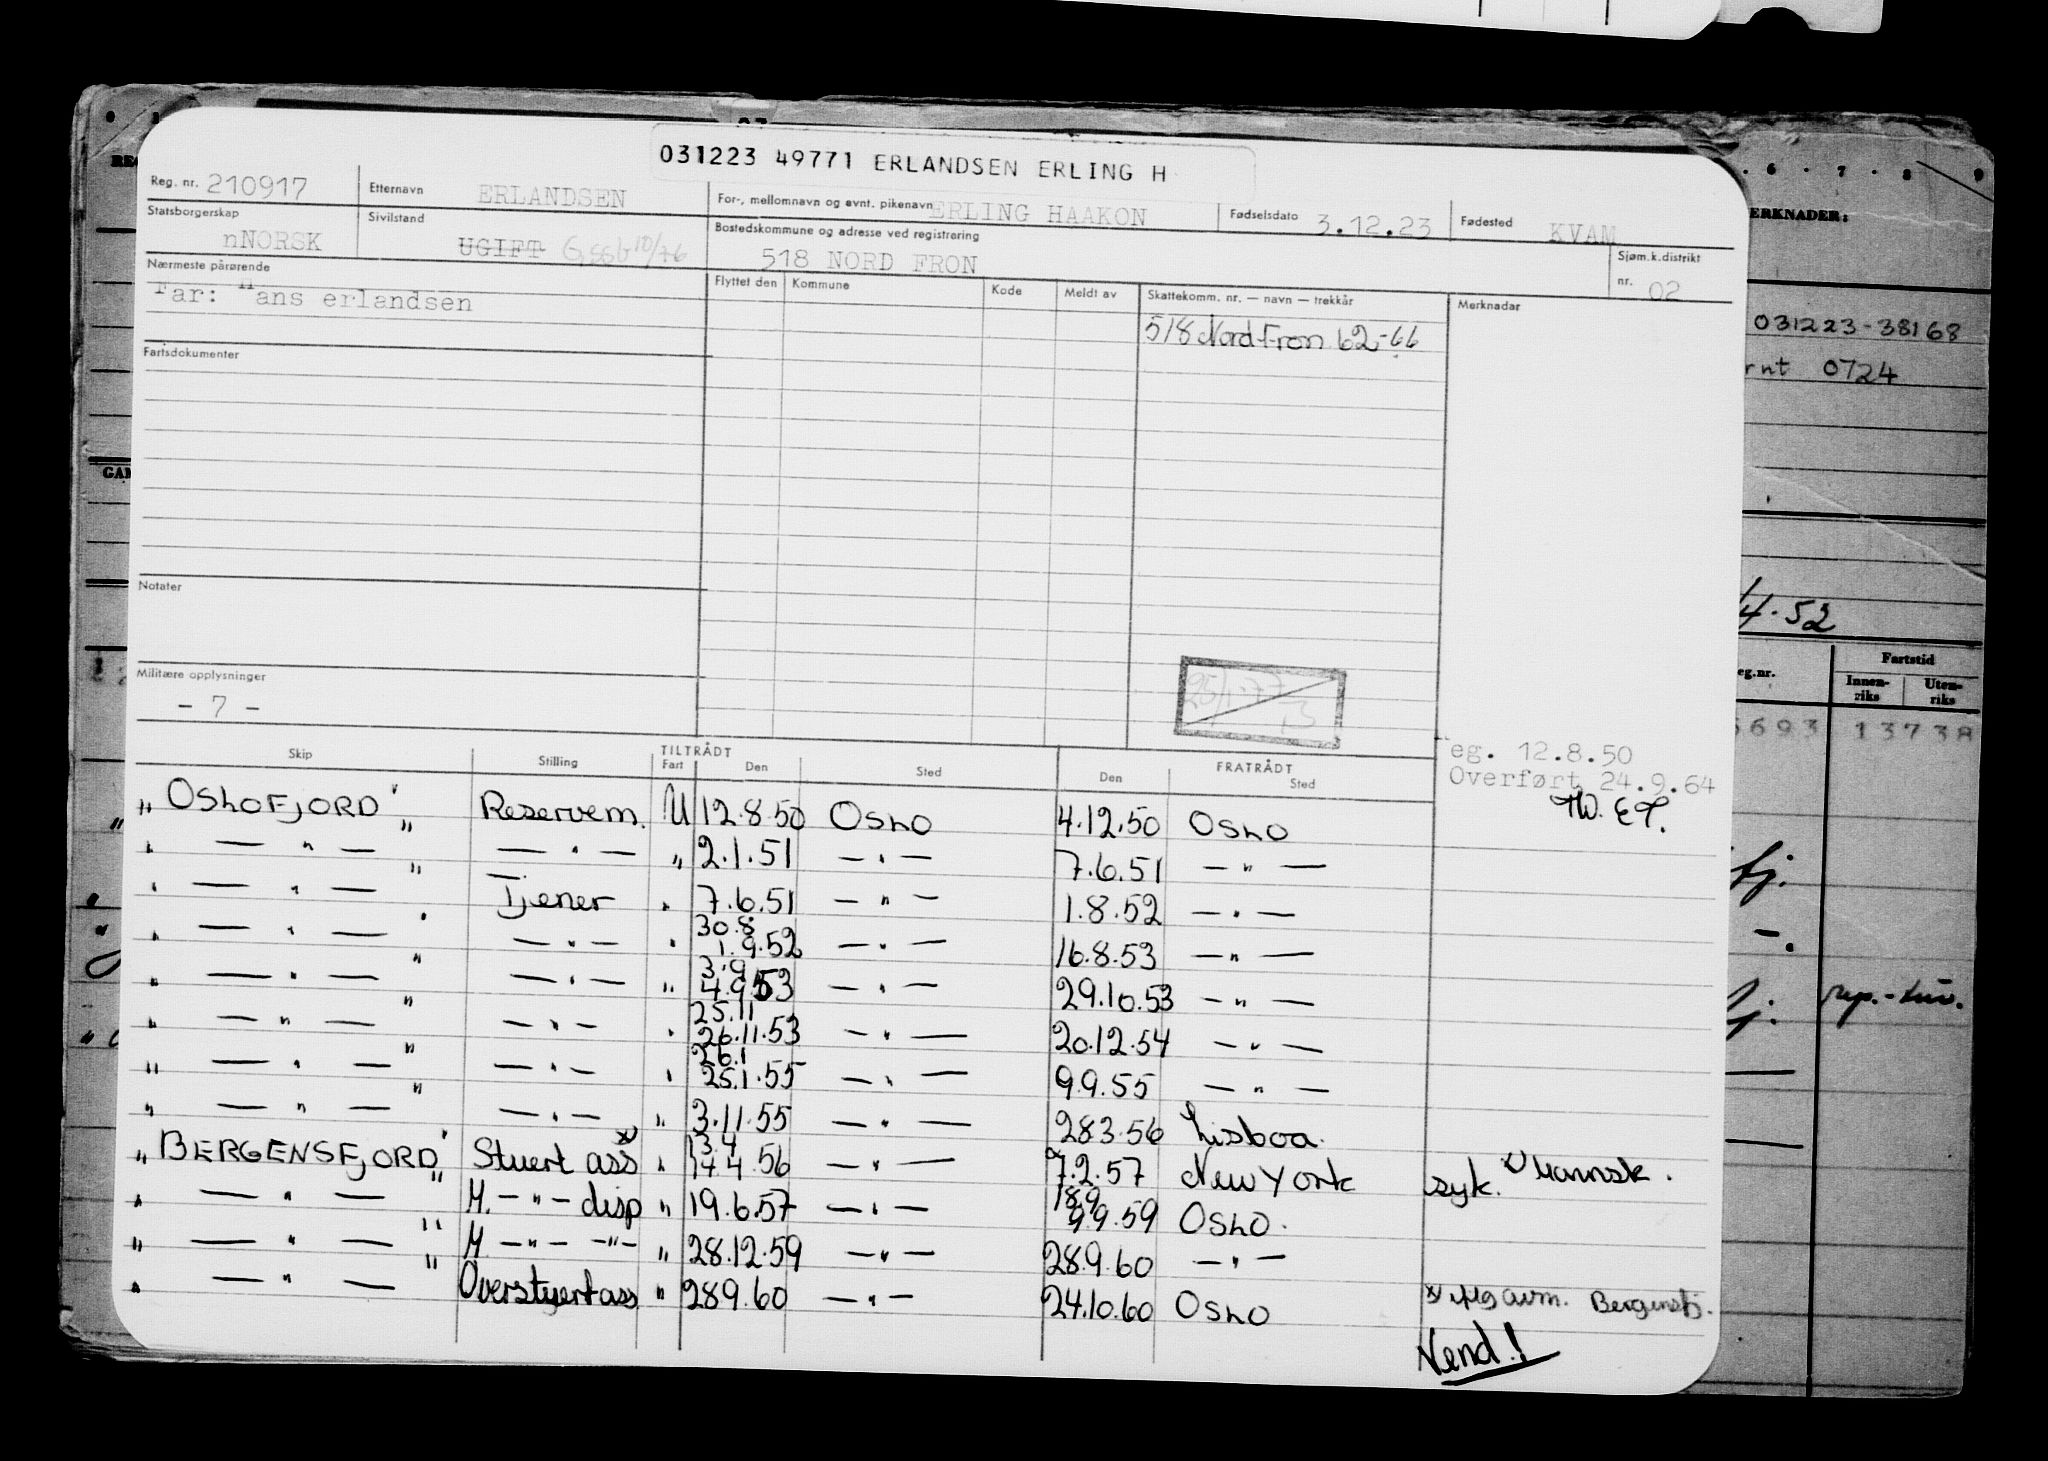 031223 49771 ERLANDSEN ERLING H
Reg. nr. 210917 Etternavn ERLANDSEN For-, mellomnavn og evnt. pikenavn ERLING HAAKON Fødselsdato 3.12.23 Fødested KVAM
Statsborgerskap nNORSK Sivilstand UGIFT Bostedskommune og adresse ved registrering 518 NORD FRON Sjøm.k.distrikt nr. 02
Nærmeste pårørende Flyttet den Kommune Kode Meldt av Skattekomm. nr. — navn — trekkår Merknader
Far: Hans erlandsen
518 Nord-Fron 62-66
031223-38168
rnt 0724
Fartsdokumenter
Notater
Militære opplysninger
- 7 -
ERKNADER:
6 . 7 . 8 9
4.52
eg.nr. Fartstid
Innen-riks Uten-riks
693 13738
eg. 12.8.50
Overført 24.9.64
Skip Stilling TILTRÅDT Fart Den Sted FRATRÅDT Den Sted
" OSLOFJORD " Reservem. U 12.8.50 OSLO 4.12.50 OSLO
" — " — " — " — " 2.1.51 — " — 7.6.51 — " —
" — " — " Tjener " 7.6.51 — " — 1.8.52 — " —
" — " — " — " — " 30.8 1.9.52 — " — 16.8.53 — " —
" — " — " — " — " 3.9 4.9.53 — " — 29.10.53 — " —
" — " — " — " — " 25.11 26.11.53 — " — 20.12.54 — " —
" — " — " — " — " 26.1 25.1.55 — " — 9.9.55 — " —
" — " — " — " — " 3.11.55 — " — 28.3.56 Lisboa.
" BERGENSFJORD " Stuert ass x) " 13.4 14.4.56 — " — 7.2.57 New York syk. x) Mannsk.
" — " — " M. — " — disp " 19.6.57 — " — 18.9 9.9.59 OSLO.
" — " — " M — " — — " — " 28.12.59 — " — 28.9.60 — " —
" — " — " Overstuert ass " 28.9.60 — " — 24.10.60 OSLO x) iflg avm. Bergensfj.
Vend!